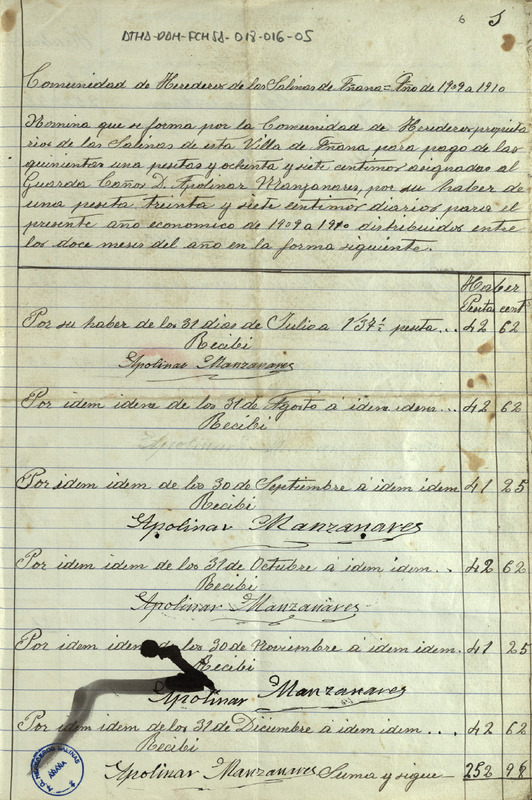 6
5
ATHA-DAH-FCHSA-018-016-05
Comunidad de Herederos de las Salinas de Añana = Año de 1909 a 1910
Nomina que se forma por la Comunidad de Herederos propiet
arios de las Salinas de esta Villa de Añana para pago de las
quinientas una pesetas y ochenta y siete centimos asignadas al
Guarda Caños D. Apolinar Manzanares, por su haber de
una peseta treinta y siete centimos diarios para el
presente año economico de 1909 a 1910 distribuidos entre
los doce meses del año en la forma siguiente.
Haber
Pesetas cent
Por su haber de los 31 dias de Julio a 1'37 peseta... 42 62
Recibi
Apolinar Manzanares
Por idem idem de los 31 de Agosto á idem idem... 42 62
Recibi
Apolinar
Por idem idem de los 30 de Septiembre á idem idem 41 25
Recibi
Apolinar Manzanares
Por idem idem de los 31 de Octubre á idem idem... 42 62
Recibi
Apolinar Manzanares
Por idem idem de los 30 de Noviembre á idem idem. 41 25
Recibi
Apolinar Manzanares
Por idem idem de los 31 de Diciembre á idem idem... 42 62
Recibi
Apolinar Manzanares Suma y sigue 252 98
SALINAS
AÑANA